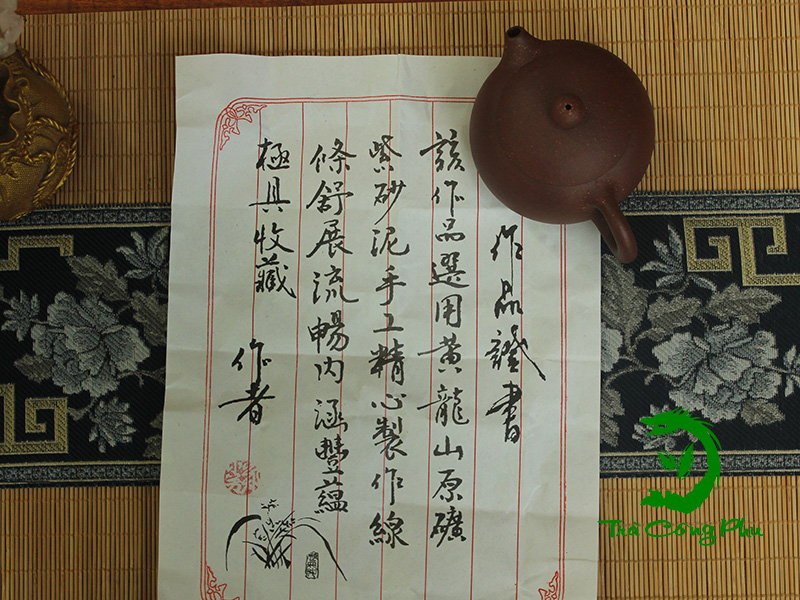 作品證書
該作品選用黃龍山原礦
紫砂泥手工精心製作線
條舒展流暢內涵豐蘊
極具收藏
作者
Trà Công Phu